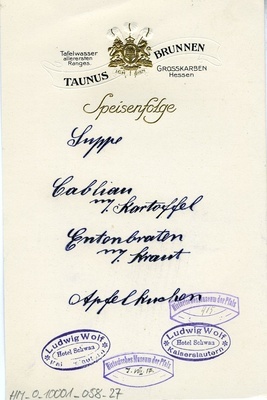 Tafelwasser
allerersten
Ranges.
TAUNUS BRUNNEN
GROSSKARBEN
Hessen
Speisenfolge
Suppe
Cabliau
m/. Kartoffel
Entenbraten
m/. Kraut
Apfelkuchen
Historisches Museum der Pfalz
HM
Ludwig Wolf
Hotel Schwan
Kaiserslautern
Ludwig Wolf
Hotel Schwan
Kaiserslautern
Historisches Museum der Pfalz
HM_0_10001_058_27